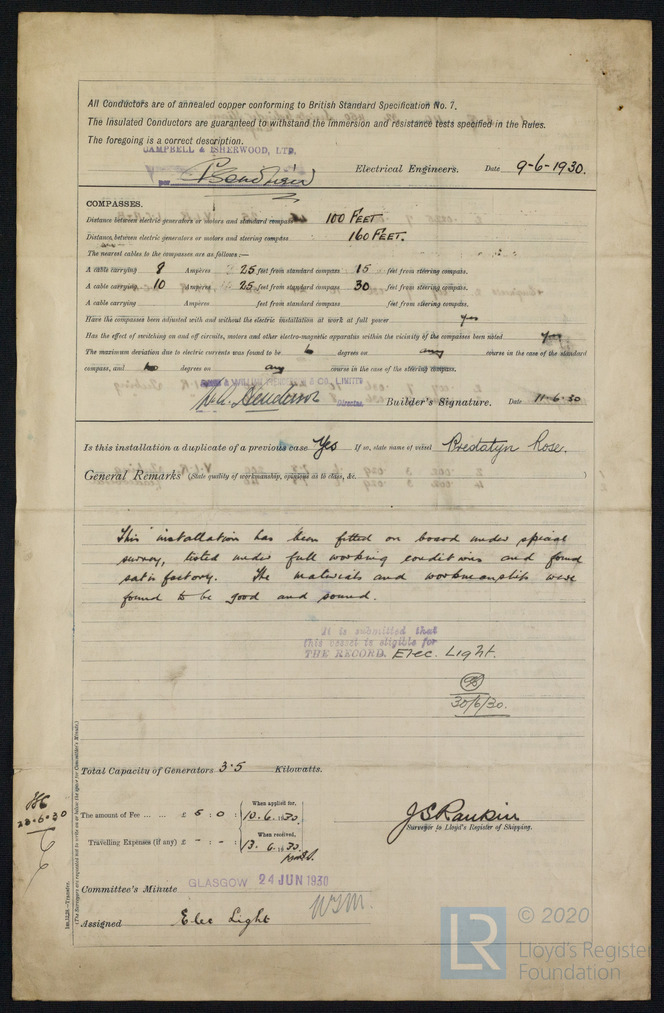 All Conductors are of annealed copper conforming to British Standard Specification No. 7.
The Insulated Conductors are guaranteed to withstand the immersion and resistance tests specified in the Rules.
The foregoing is a correct description.
CAMPBELL & ISHERWOOD, LTD.
per Electrical Engineers. Date 9-6-1930.
COMPASSES.
Distance between electric generators or motors and standard compass 100 FEET
Distance between electric generators or motors and steering compass 160 FEET.
The nearest cables to the compasses are as follows:—
A cable carrying 8 Ampères 25 feet from standard compass 15 feet from steering compass.
A cable carrying 10 Ampères 25 feet from standard compass 30 feet from steering compass.
A cable carrying Ampères feet from standard compass feet from steering compass.
Have the compasses been adjusted with and without the electric installation at work at full power yes
Has the effect of switching on and off circuits, motors and other electro-magnetic apparatus within the vicinity of the compasses been noted yes
The maximum deviation due to electric currents was found to be degrees on any course in the case of the standard
compass, and degrees on any course in the case of the steering compass.
& WILLIAM & CO. LIMITED
Henderson Director. Builder's Signature. Date 11-6-30
Is this installation a duplicate of a previous case Yes If so, state name of vessel Rose.
General Remarks (State quality of workmanship, opinions as to class, &c. )
This installation has been fitted on board under special
survey, tested under full working conditions and found
satisfactory. The materials and workmanship were
found to be good and sound.
It is submitted that
this vessel is eligible for
THE RECORD. Elec. Light.
30/6/30.
Total Capacity of Generators 3.5 Kilowatts.
23.6.30
The amount of Fee ... ... £ 5 : 0 : When applied for, 10.6.1930.
JS Rankin
Surveyor to Lloyd's Register of Shipping.
Travelling Expenses (if any) £ - : - : When received, 13.6.1930.
Committee's Minute GLASGOW 24 JUN 1930
Assigned Elec Light
1m.12.28.—Transfer.
(The Surveyors are requested not to write on or below the space for Committee's Minute.)
LR © 2020
Lloyd's Register
Foundation